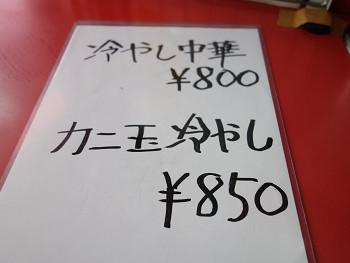 冷やし中華
¥800
カニ玉冷やし
¥850